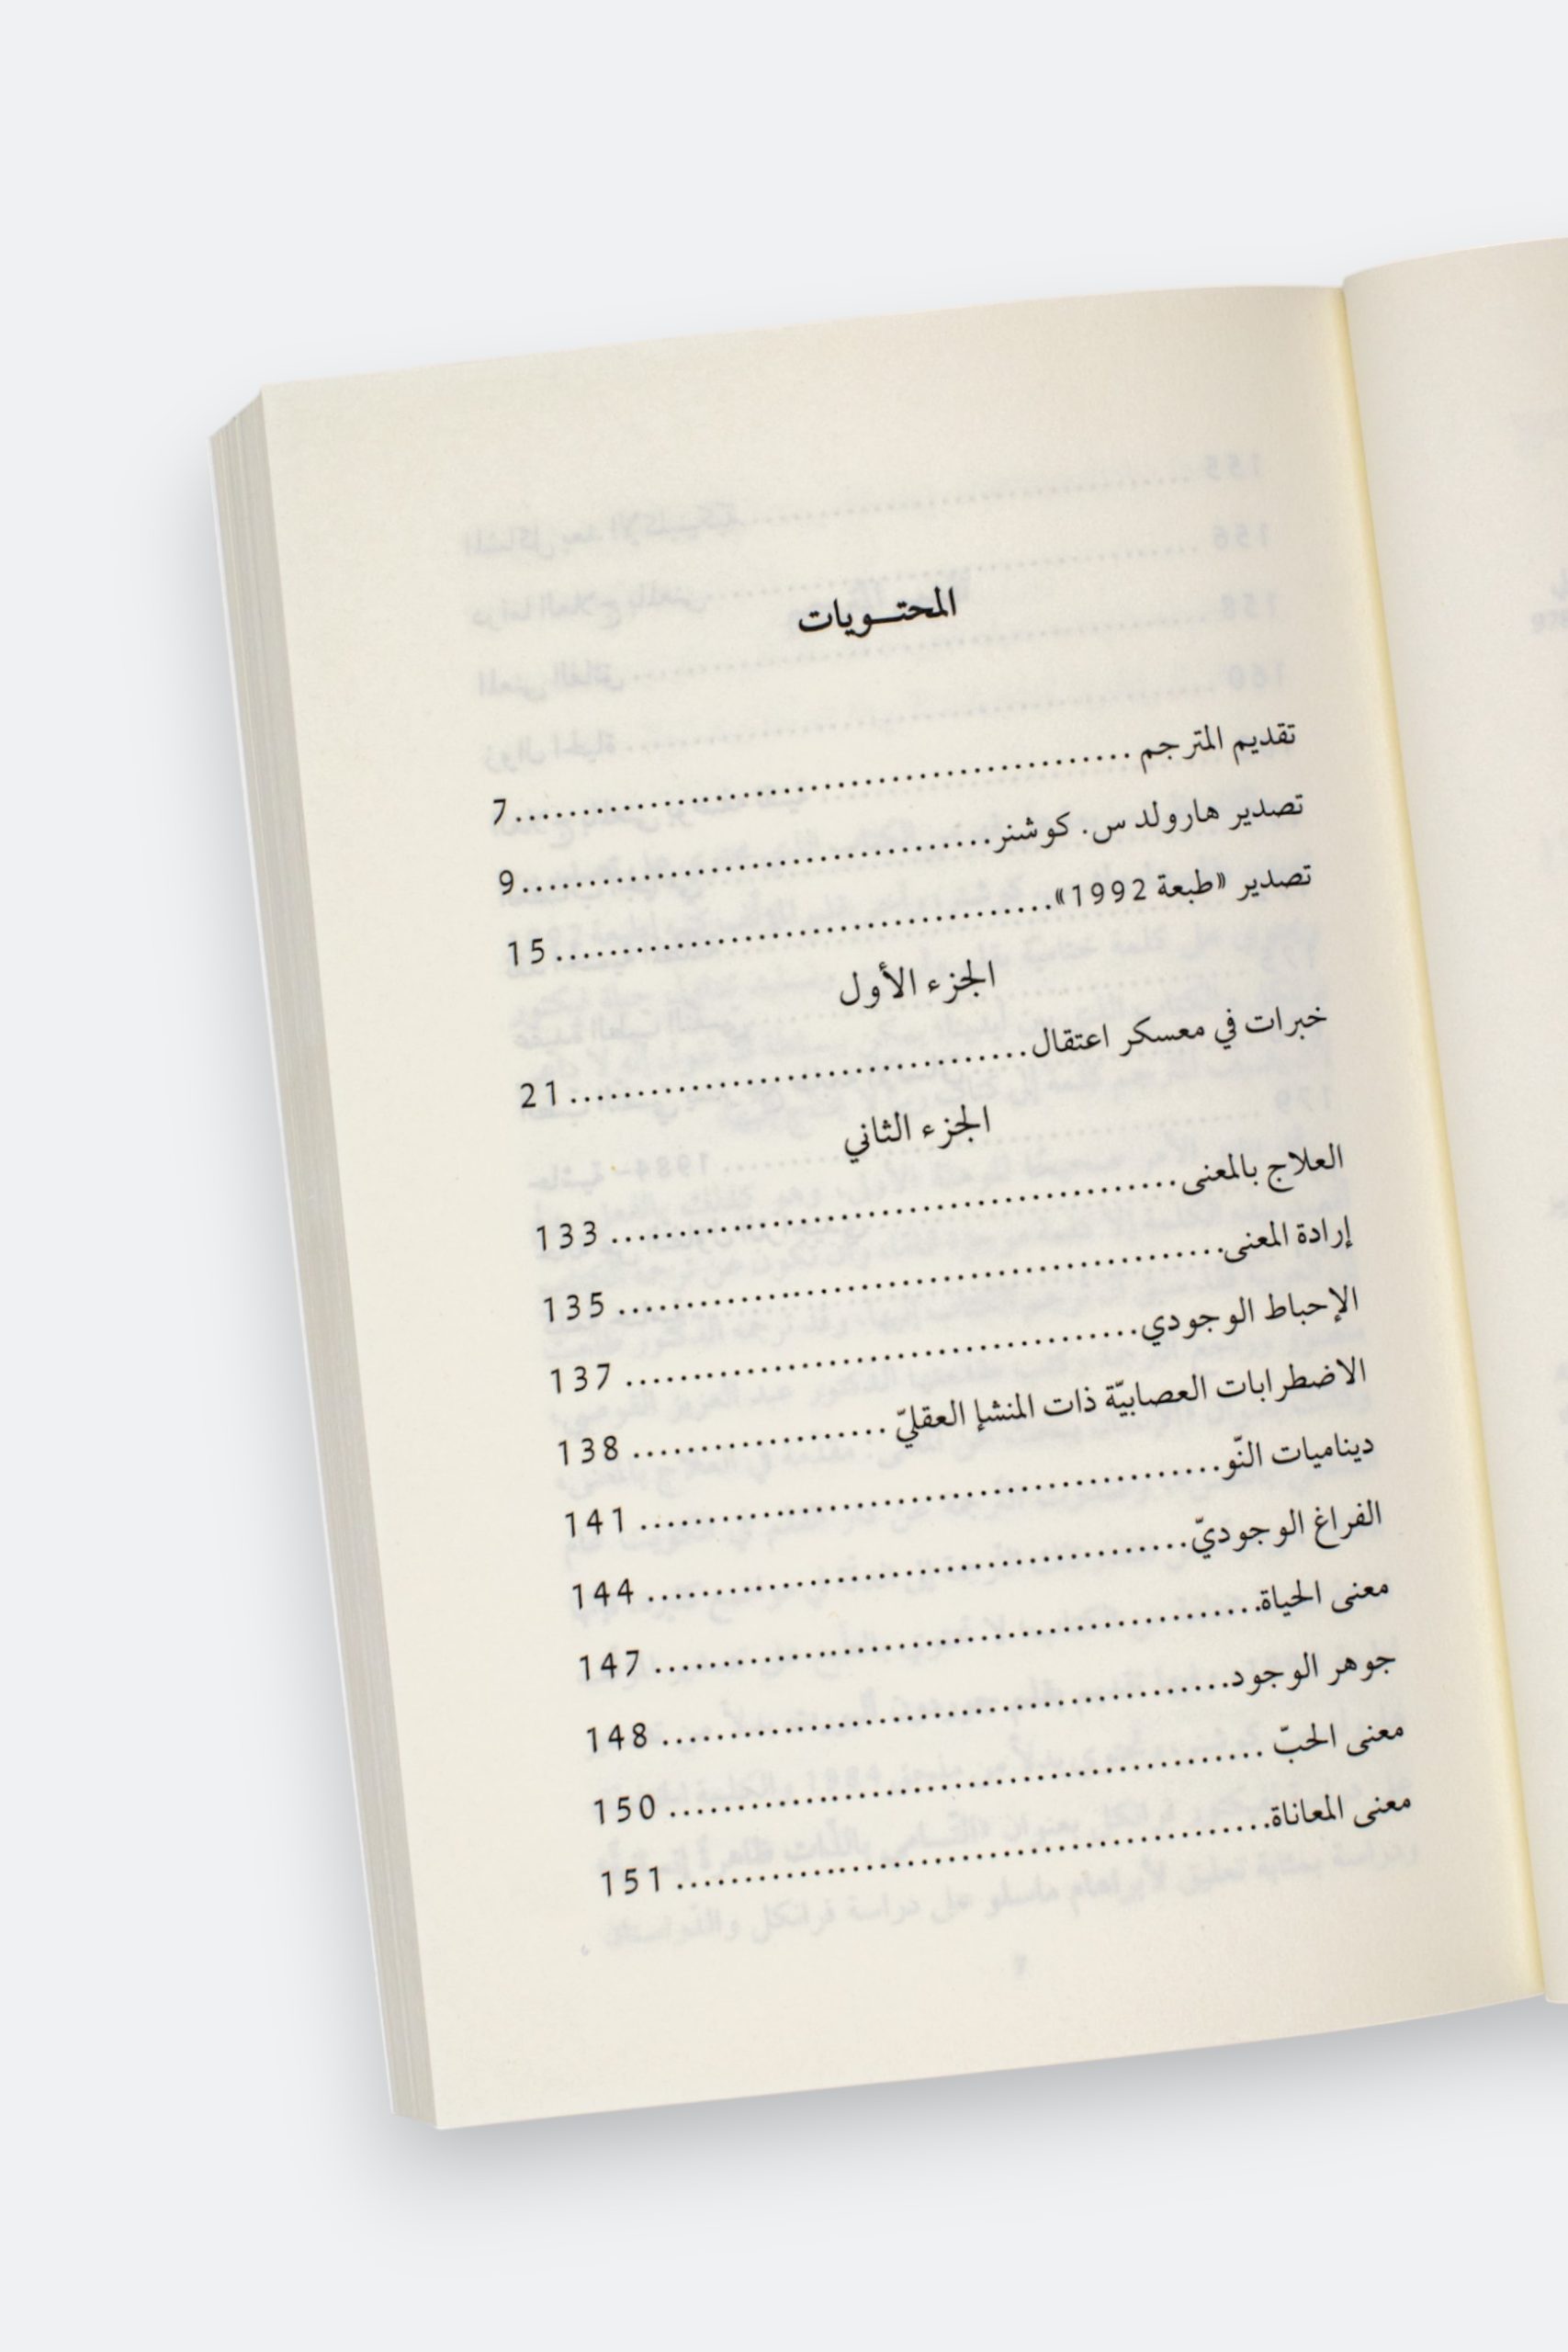 المحتـــويات
تقديم المترجم ........................................ 7
تصدير هارولد س. كوشنر........................................ 9
تصدير «طبعة 1992»........................................ 15
الجزء الأول
خبرات في معسكر اعتقال........................................ 21
الجزء الثاني
العلاج بالمعنى........................................ 133
إرادة المعنى........................................ 135
الإحباط الوجودي........................................ 137
الاضطرابات العصابيّة ذات المنشإ العقليّ ................... 138
ديناميات النّو........................................ 141
الفراغ الوجوديّ........................................ 144
معنى الحياة........................................ 147
جوهر الوجود........................................ 148
معنى الحبّ ........................................ 150
معنى المعاناة........................................ 151